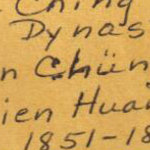 Ching
Dynas
n Chün
ien Huai
1851-18